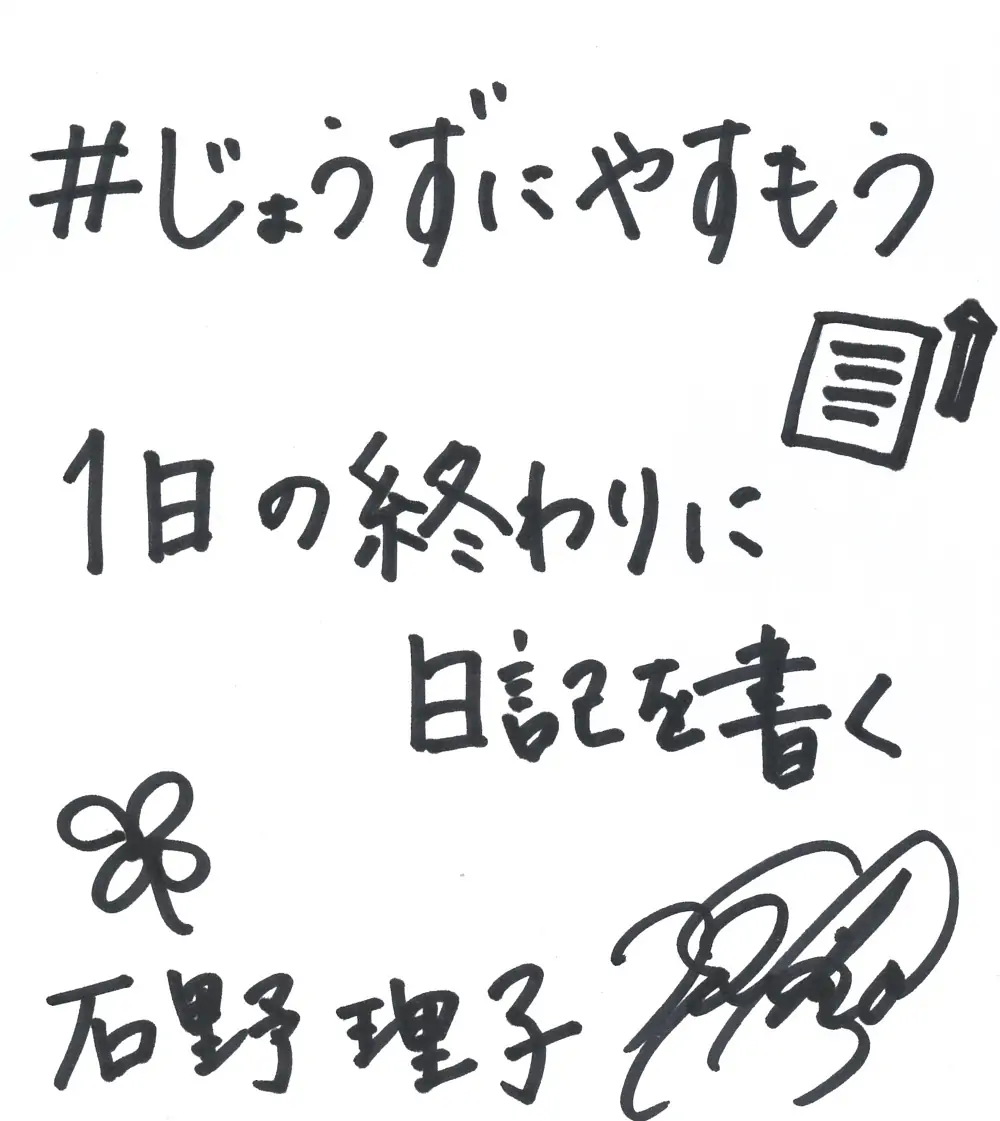 #じょうずにやすもう
1日の終わりに
日記を書く
石野理子